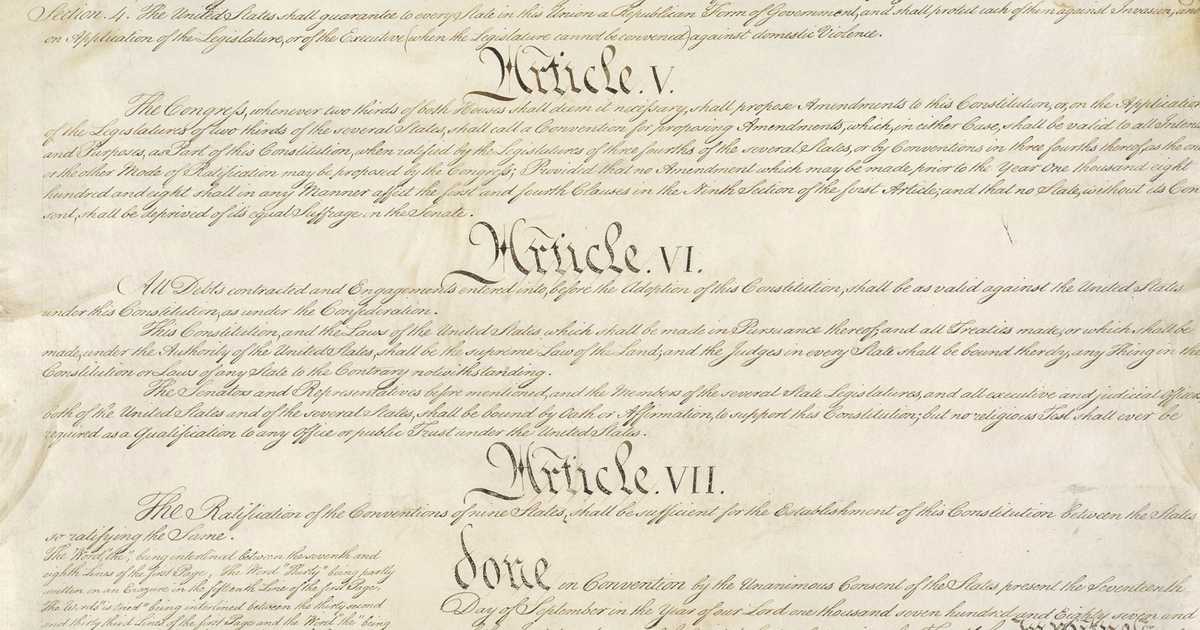 Section. 4. The United States shall guarantee to every State in this Union a Republican Form of Government, and shall protect each of them against Invasion; and
on Application of the Legislature, or of the Executive (when the Legislature cannot be convened) against domestic Violence.
Article. V.
The Congress, whenever two thirds of both Houses shall deem it necessary, shall propose Amendments to this Constitution, or, on the Application
of the Legislatures of two thirds of the several States, shall call a Convention for proposing Amendments, which, in either Case, shall be valid to all Intents
and Purposes, as Part of this Constitution, when ratified by the Legislatures of three fourths of the several States, or by Conventions in three fourths thereof, as the one
or the other Mode of Ratification may be proposed by the Congress; Provided that no Amendment which may be made prior to the Year One thousand eight
hundred and eight shall in any Manner affect the first and fourth Clauses in the Ninth Section of the first Article; and that no State, without its Con
sent, shall be deprived of its equal Suffrage in the Senate.
Article. VI.
All Debts contracted and Engagements entered into, before the Adoption of this Constitution, shall be as valid against the United States
under this Constitution, as under the Confederation.
This Constitution, and the Laws of the United States which shall be made in Pursuance thereof; and all Treaties made, or which shall be
made, under the Authority of the United States, shall be the supreme Law of the Land; and the Judges in every State shall be bound thereby, any Thing in the
Constitution or Laws of any State to the Contrary notwithstanding.
The Senators and Representatives before mentioned, and the Members of the several State Legislatures, and all executive and judicial Officers,
both of the United States and of the several States, shall be bound by Oath or Affirmation, to support this Constitution; but no religious Test shall ever be
required as a Qualification to any Office or public Trust under the United States.
Article. VII.
The Ratification of the Conventions of nine States, shall be sufficient for the Establishment of this Constitution between the States
so ratifying the Same.
The Word, "the", being interlined between the seventh and
eighth Lines of the first Page, The Word "Thirty" being partly
written on an Erazure in the fifteenth Line of the first Page,
The Words "is tried" being interlined between the thirty second
and thirty third Lines of the first Page and the Word "the" being
done in Convention by the Unanimous Consent of the States present the Seventeenth
Day of September in the Year of our Lord one thousand seven hundred and Eighty seven and